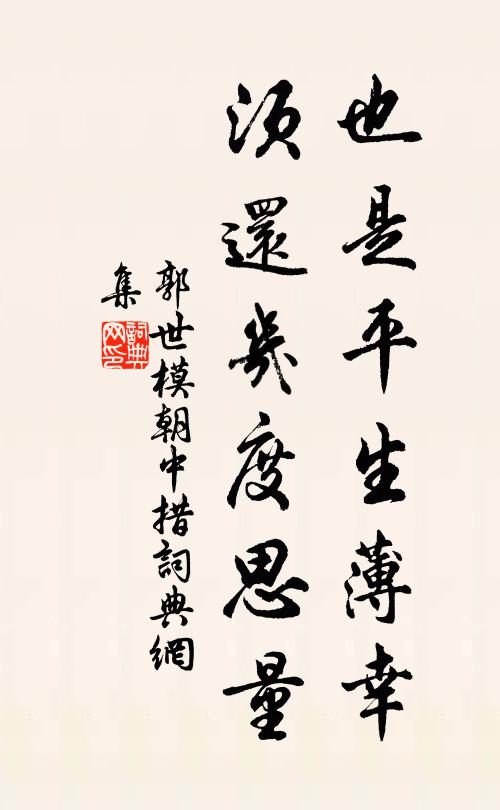 也是平生薄幸
須還幾度思量
郭世模朝中措詞典網
集
詞典網印